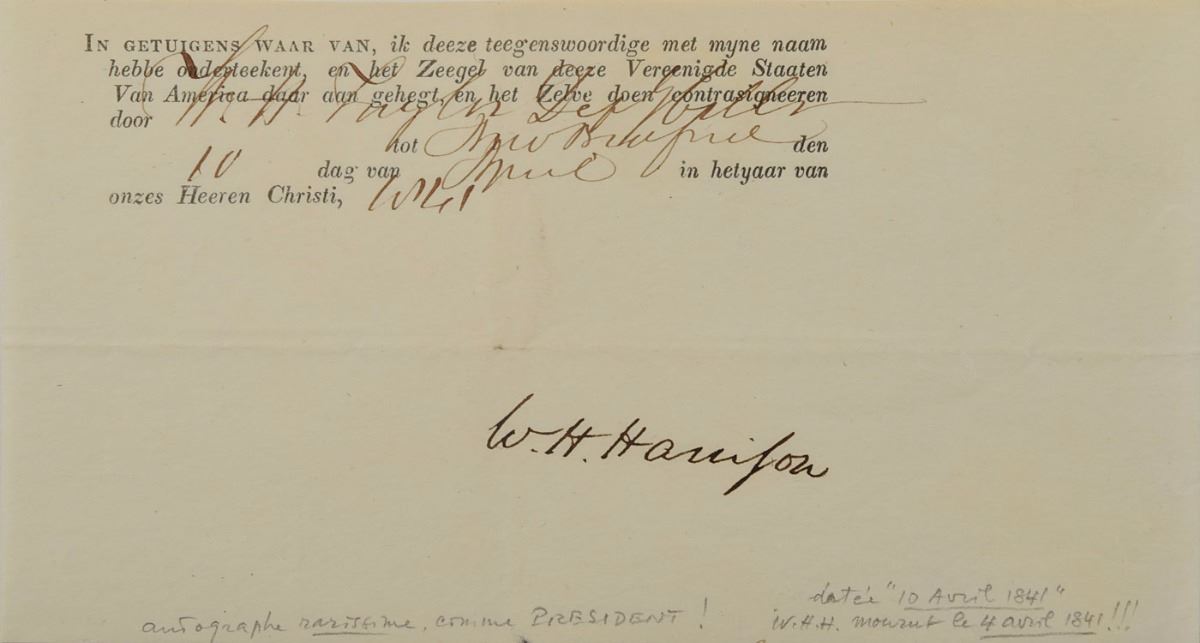 IN GETUIGENS WAAR VAN, ik deeze teegenswoordige met myne naam
hebbe onderteekent, en het Zeegel van deeze Vereenigde Staaten
Van America daar aan gehegt en het Zelve doen contrasigneeren
door W. H. Taylor Dep Collector
tot New Bedford den
10 dag van April in hetyaar van
onzes Heeren Christi, 1841
W. H. Harrison
datée "10 Avril 1841"
autographe rarissime, comme PRESIDENT !
W.H.H. mourut le 4 avril 1841!!!